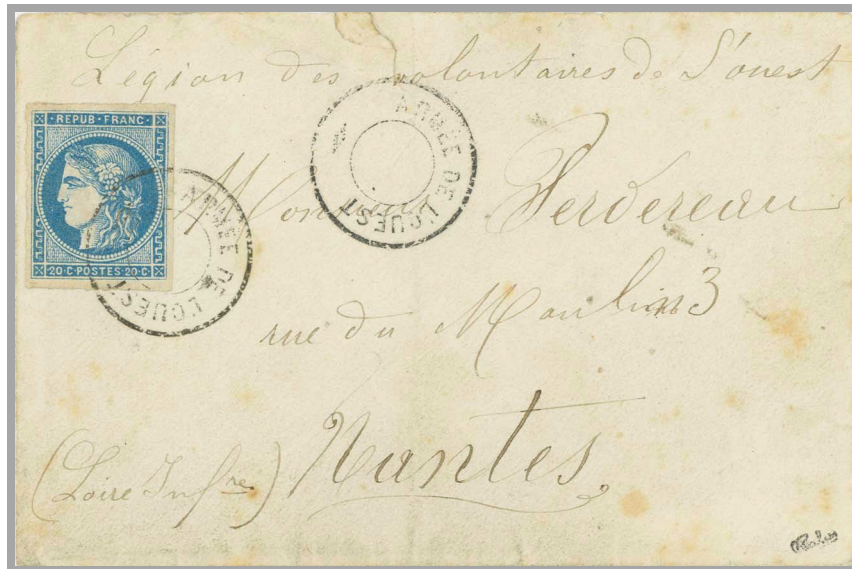 Légion des volontaires de l'ouest
REPUB·FRANC·
20·C·POSTES·20·C·
ARMÉE DE L'OUEST
ARMÉE DE L'OUEST
Verdereau
rue du Moulin 3
Nantes
(Loire Infre)